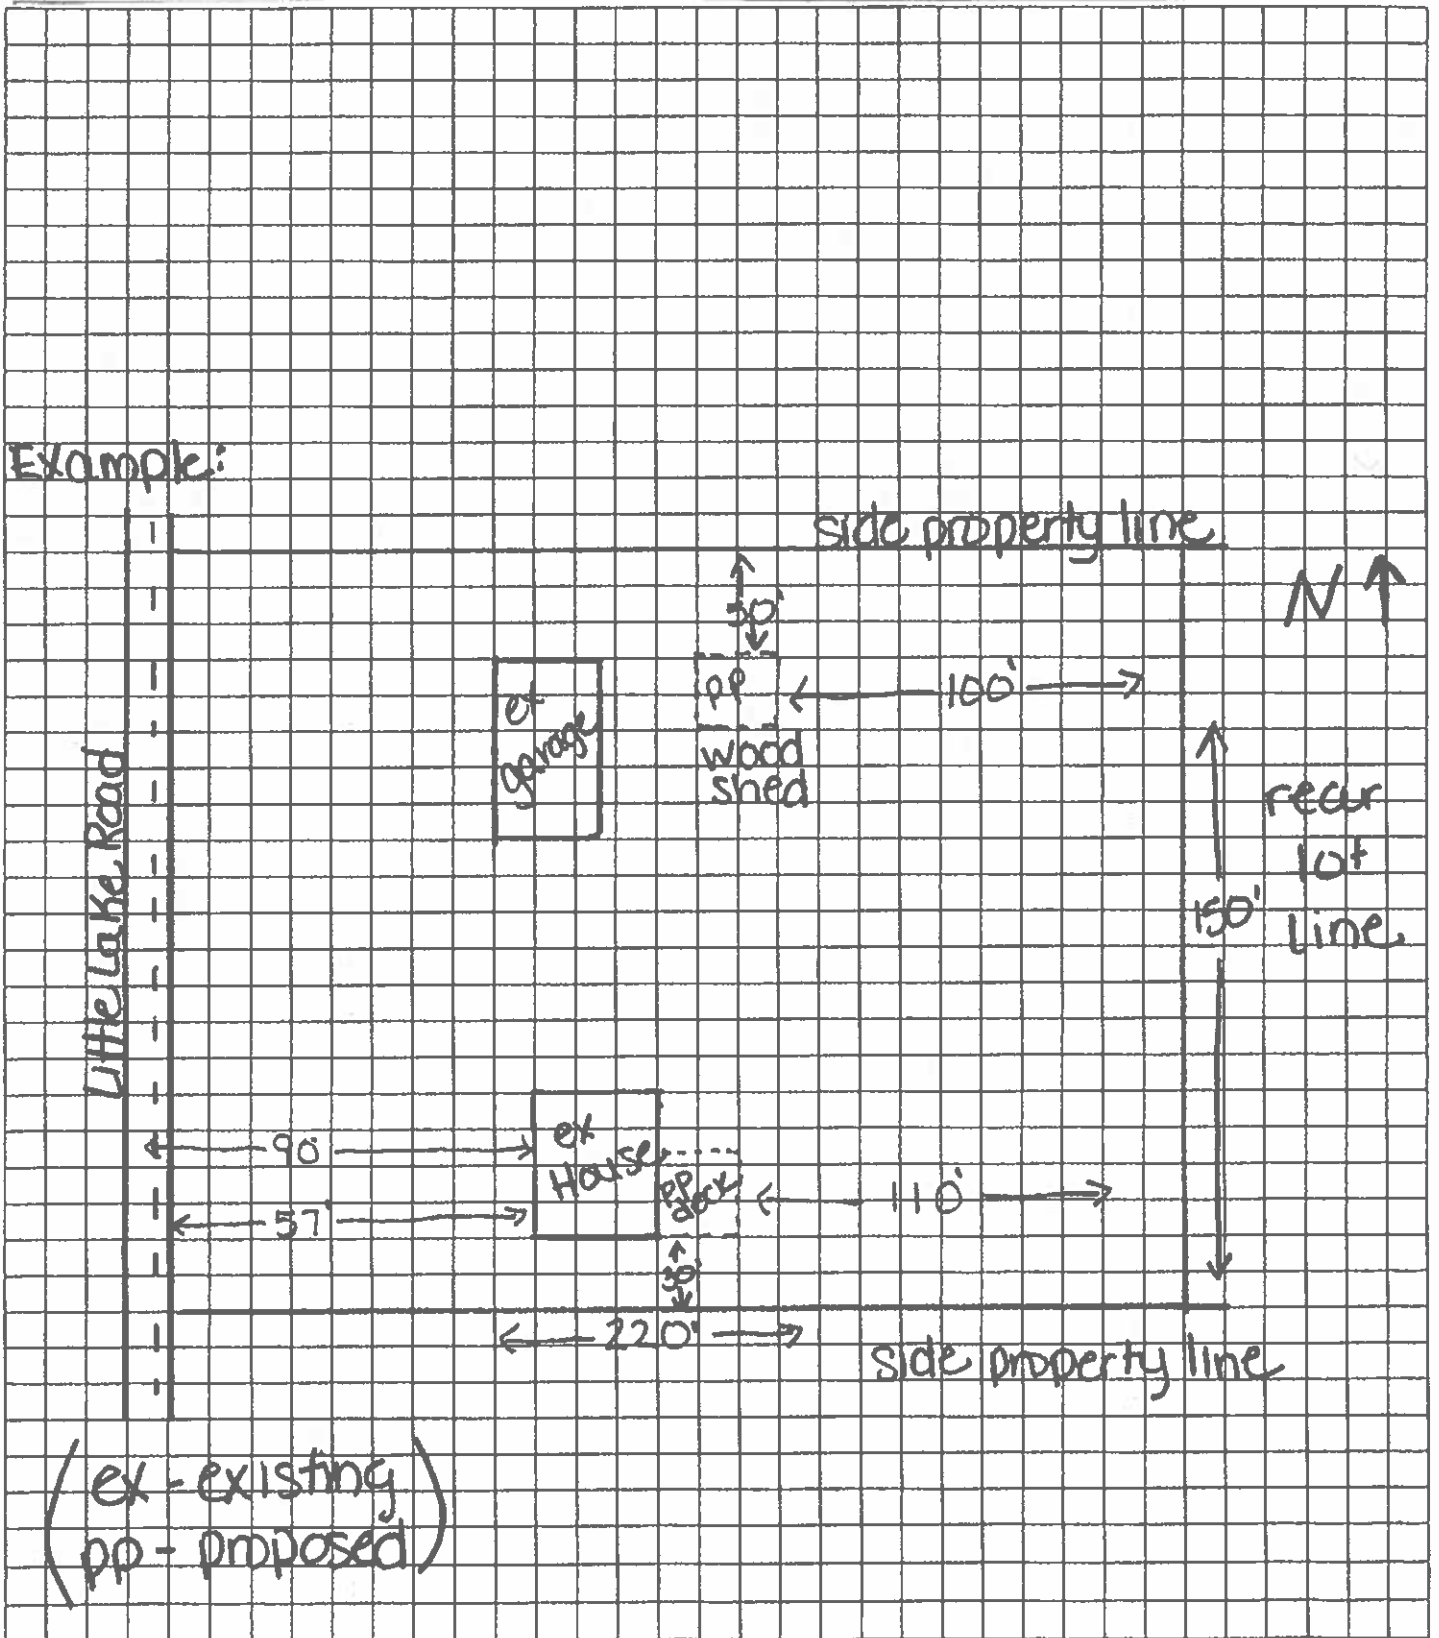 Example:
side property line
N
30'
pp
100'
ex
garage
wood
shed
rear
lot
line
150'
Little Lake Road
90'
ex
House
pp
deck
110'
57'
30'
220'
side property line
(ex - existing
pp - proposed)